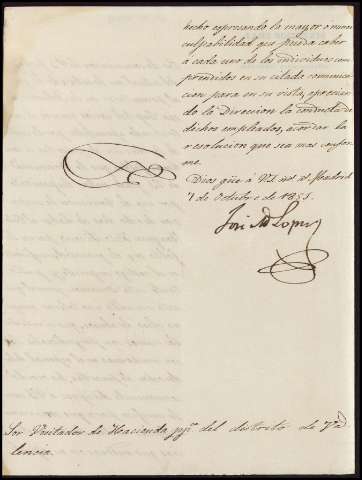 hecho espresando la mayor ó menor
culpabilidad que pueda caber
á cada uno de los individuos com
prendidos en su citada comunica
cion para en su vista, apreciar
do la Direccion la conducta de
dichos empleados, acordar la
resolucion que sea mas confor
me.
Dios gue á V.S. ms. as. Madrid
7 de Octubre de 1855.
José M Lopez
Sor Visitador de Hacienda pp.ca del distrito de Va
lencia.